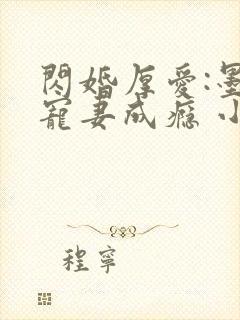 閃婚厚愛:墨
寵妻成瘾 小
程寧